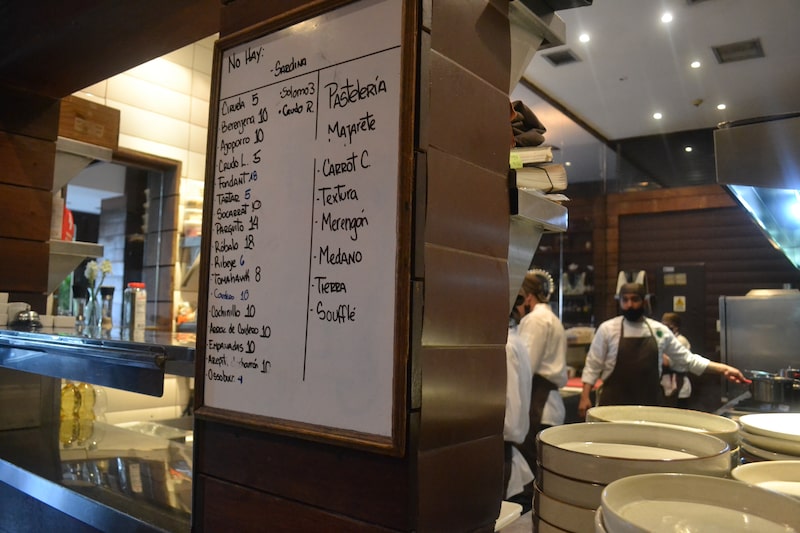 No Hay:
- Sardina
Ciruela 5
Berenjena 10
Ajoporro 10
Crudo L. 5
Fondant 18
Tartar 5
Socarrat 10
Parguito 14
Róbalo 18
Ribeye 6
Tomahawk 8
Cordero 10
Cochinillo 10
Arroz de Cordero 10
Empanadas 10
10
Ossobuco
Solomo 3
Crudo R.
Pastelería
- Majarete
- Carrot C
- Textura
- Merengón
- Medano
- Tierra
- Soufflé